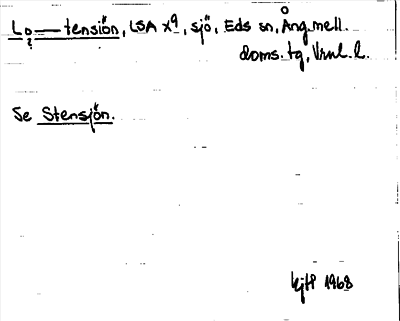 Lo — tensiön, LSA X9, sjö, Eds sn, Ångmell.
doms. tg, Vrml. l.
Se Stensjön.
1968